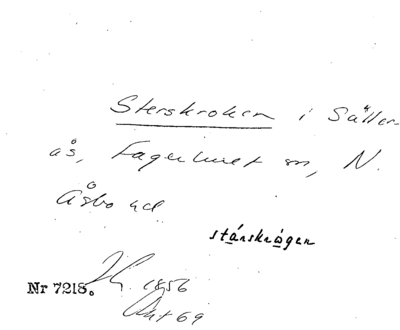 Sterskroken i Säller-
ås, Fagerhult sn, N.
Åsbo hd
stá̱rskrå̱gen
Nr 7218. 1856
Akt 69